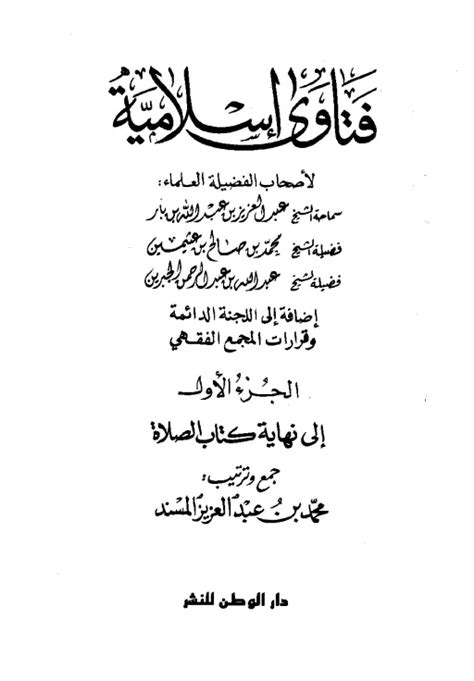 فتاوى إسلامية
لأصحاب الفضيلة العلماء:
سماحة الشيخ عبد العزيز بن عبد الله بن باز
فضيلة الشيخ محمد بن صالح بن عثيمين
فضيلة الشيخ عبد الله بن عبد الرحمن الجبرين
إضافة إلى اللجنة الدائمة
وقرارات المجمع الفقهي
الجزء الأول
إلى نهاية كتاب الصلاة
جمع وترتيب:
محمد بن عبد العزيز المسند
دار الوطن للنشر